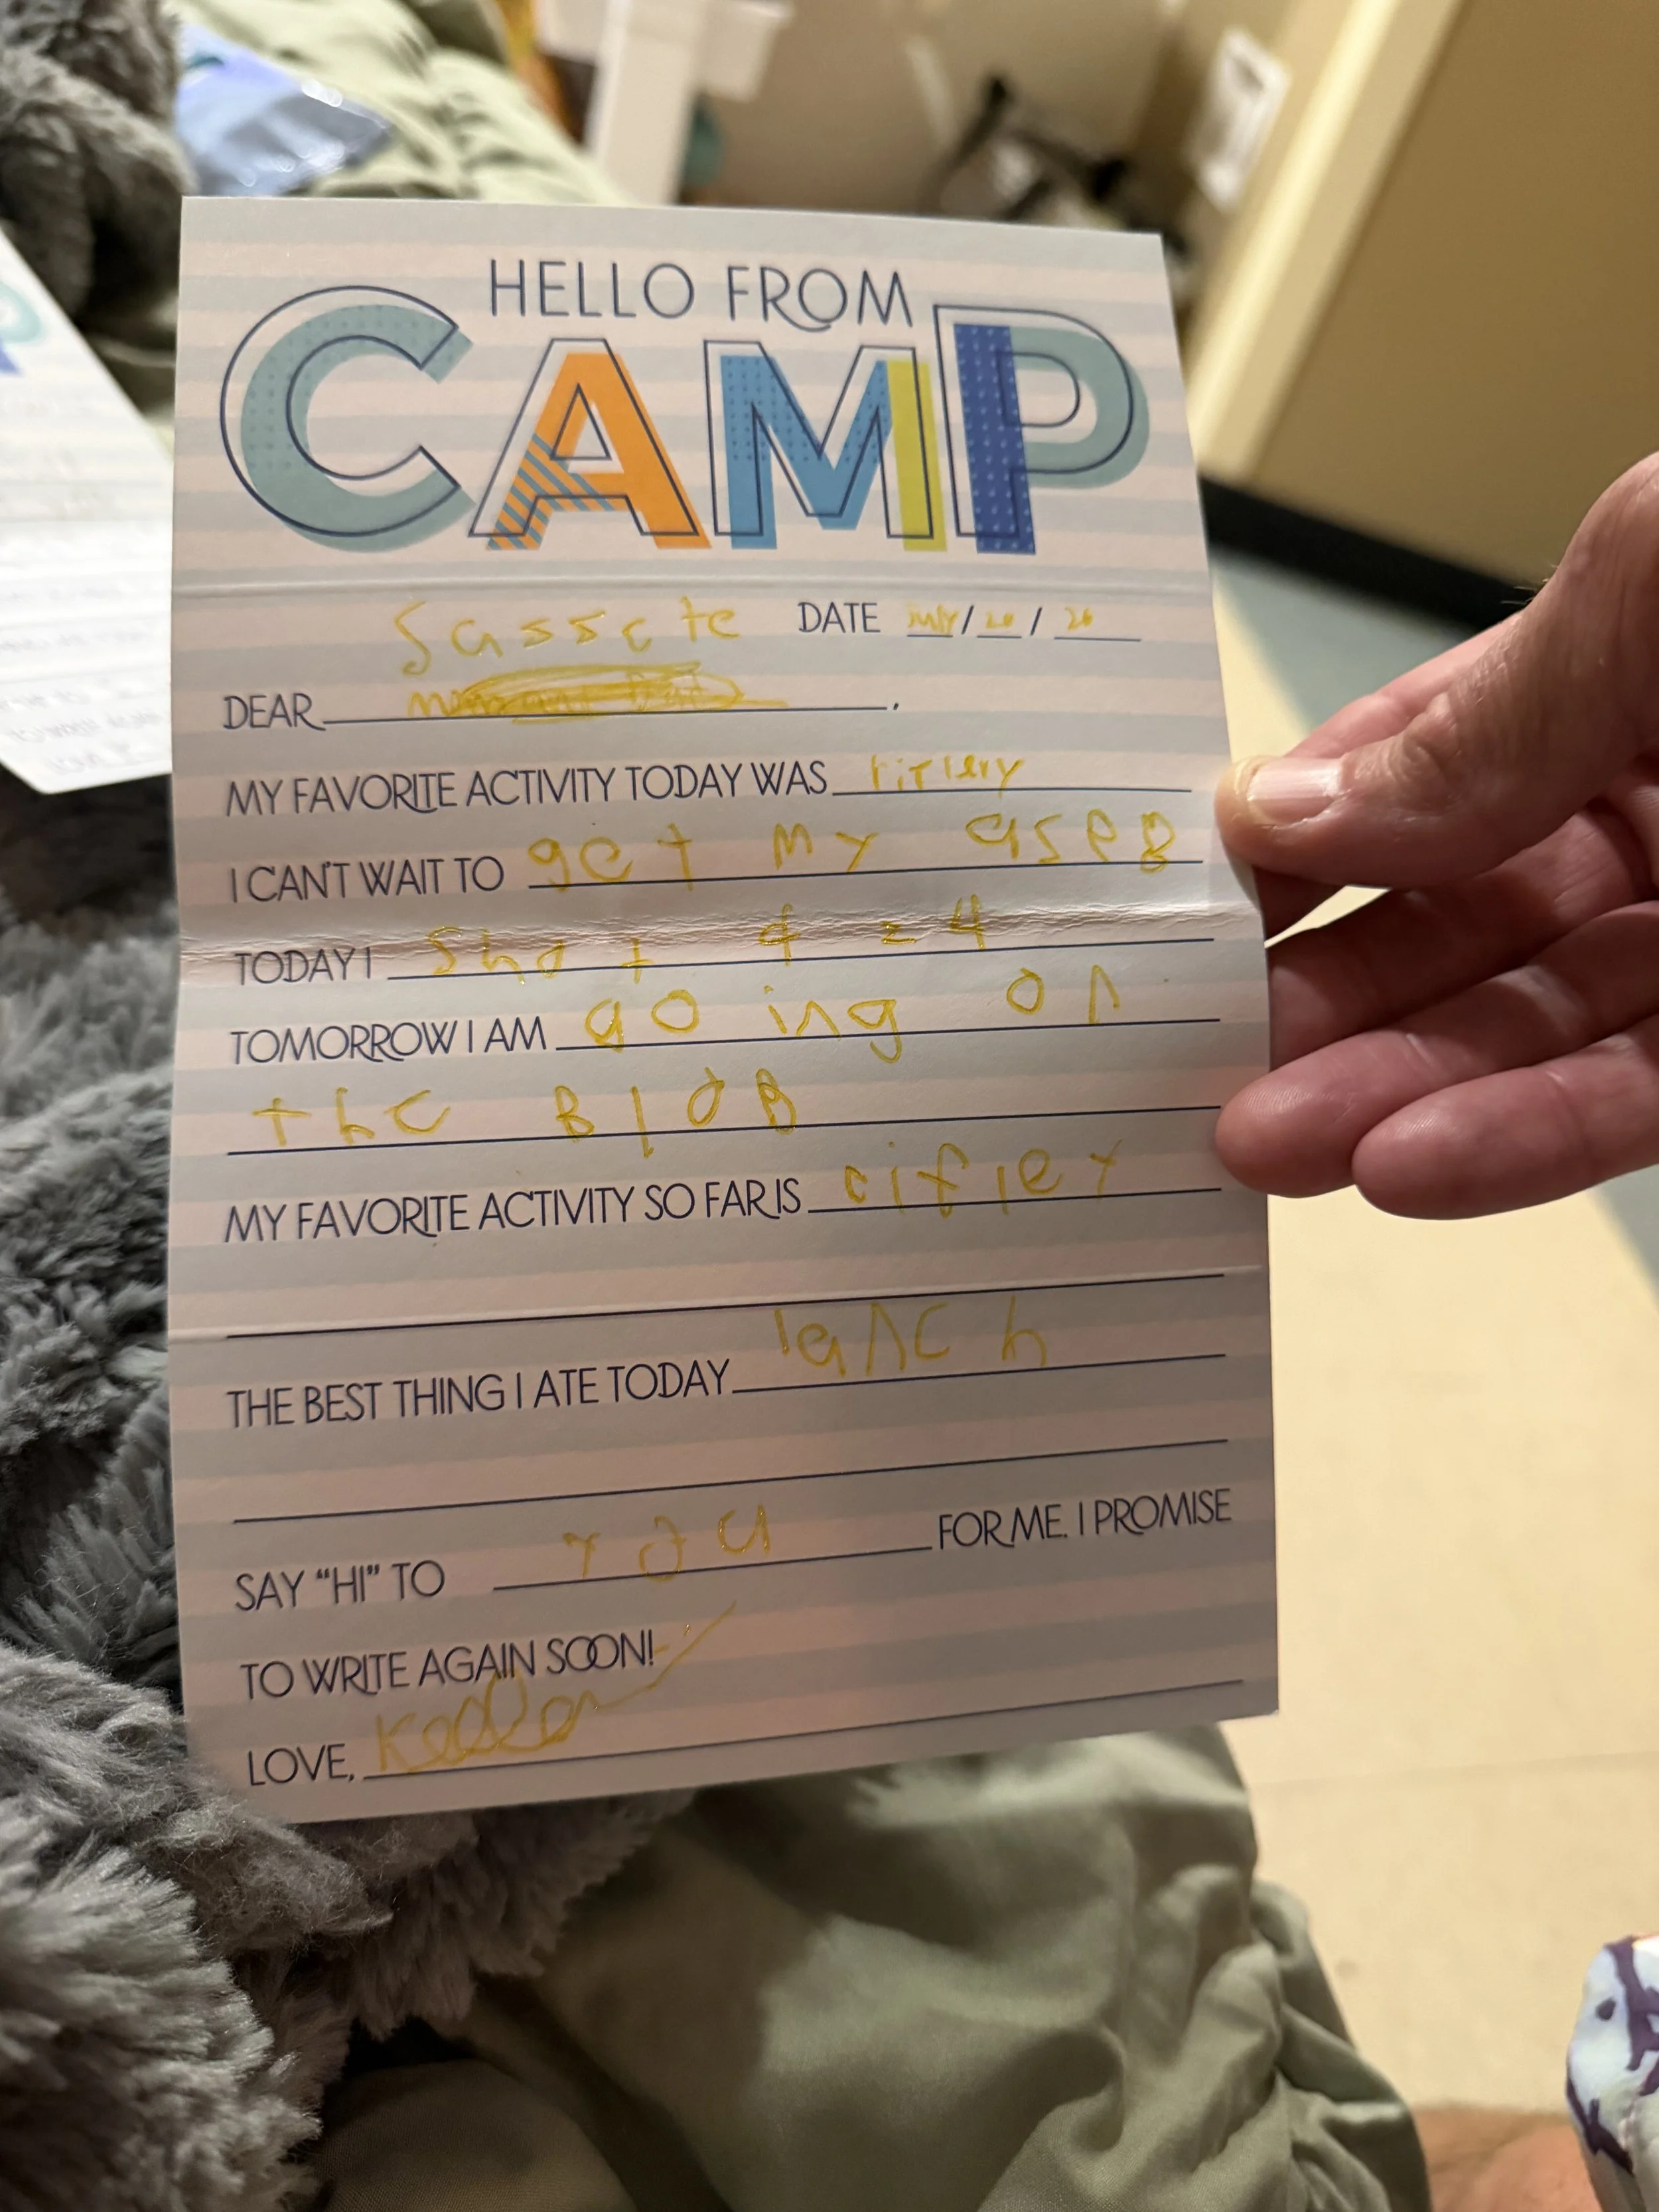 HELLO FROM
CAMP
Sasscte DATE July / 20 / 26
DEAR ,
MY FAVORITE ACTIVITY TODAY WAS riflery
I CAN'T WAIT TO get my
TODAY I Shot 4 = 4
TOMORROW I AM going on
the BloB
MY FAVORITE ACTIVITY SO FAR IS rifley
THE BEST THING I ATE TODAY lanch
SAY "HI" TO you FOR ME. I PROMISE
TO WRITE AGAIN SOON!
LOVE,